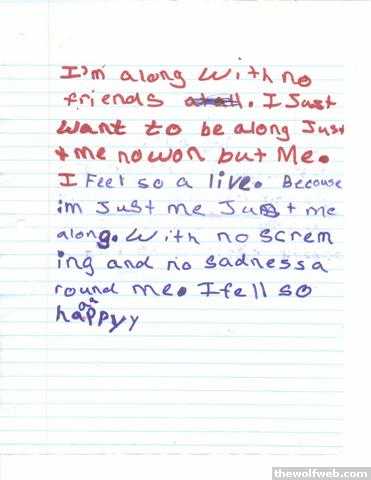 I'm along with no
friends. I Just
want to be along Just
me nowon but Me.
I Feel so a live. Becouse
im Just me Just me
along. With no screm
ing and no sadness a
round me. I fell so
happyy
thewolfweb.com